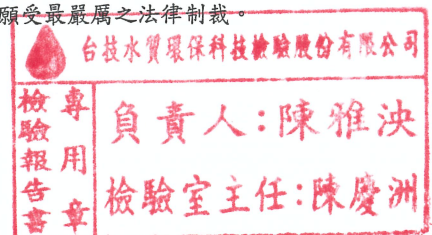 願受最嚴厲之法律制裁。
台技水質環保科技檢驗股份有限公司
檢驗報告書
專用章
負責人:陳雅泱
檢驗室主任:陳慶洲